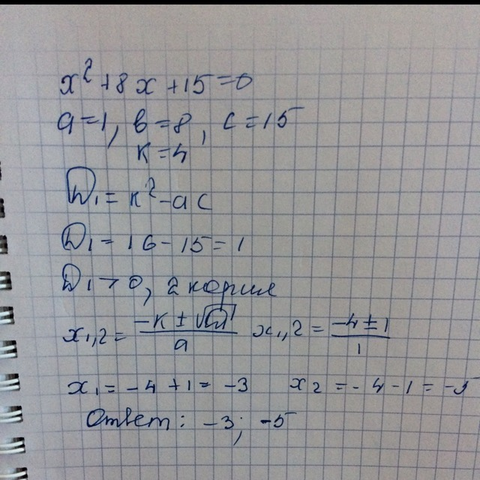 x²+8x+15=0
a=1, b=8, c=15
k=4
D₁=k²-ac
D₁=16-15=1
D₁>0, 2 корня
x₁,₂=(-k±√D₁)/a x₁,₂=(-4±1)/1
x₁=-4+1=-3 x₂=-4-1=-5
Ответ: -3; -5